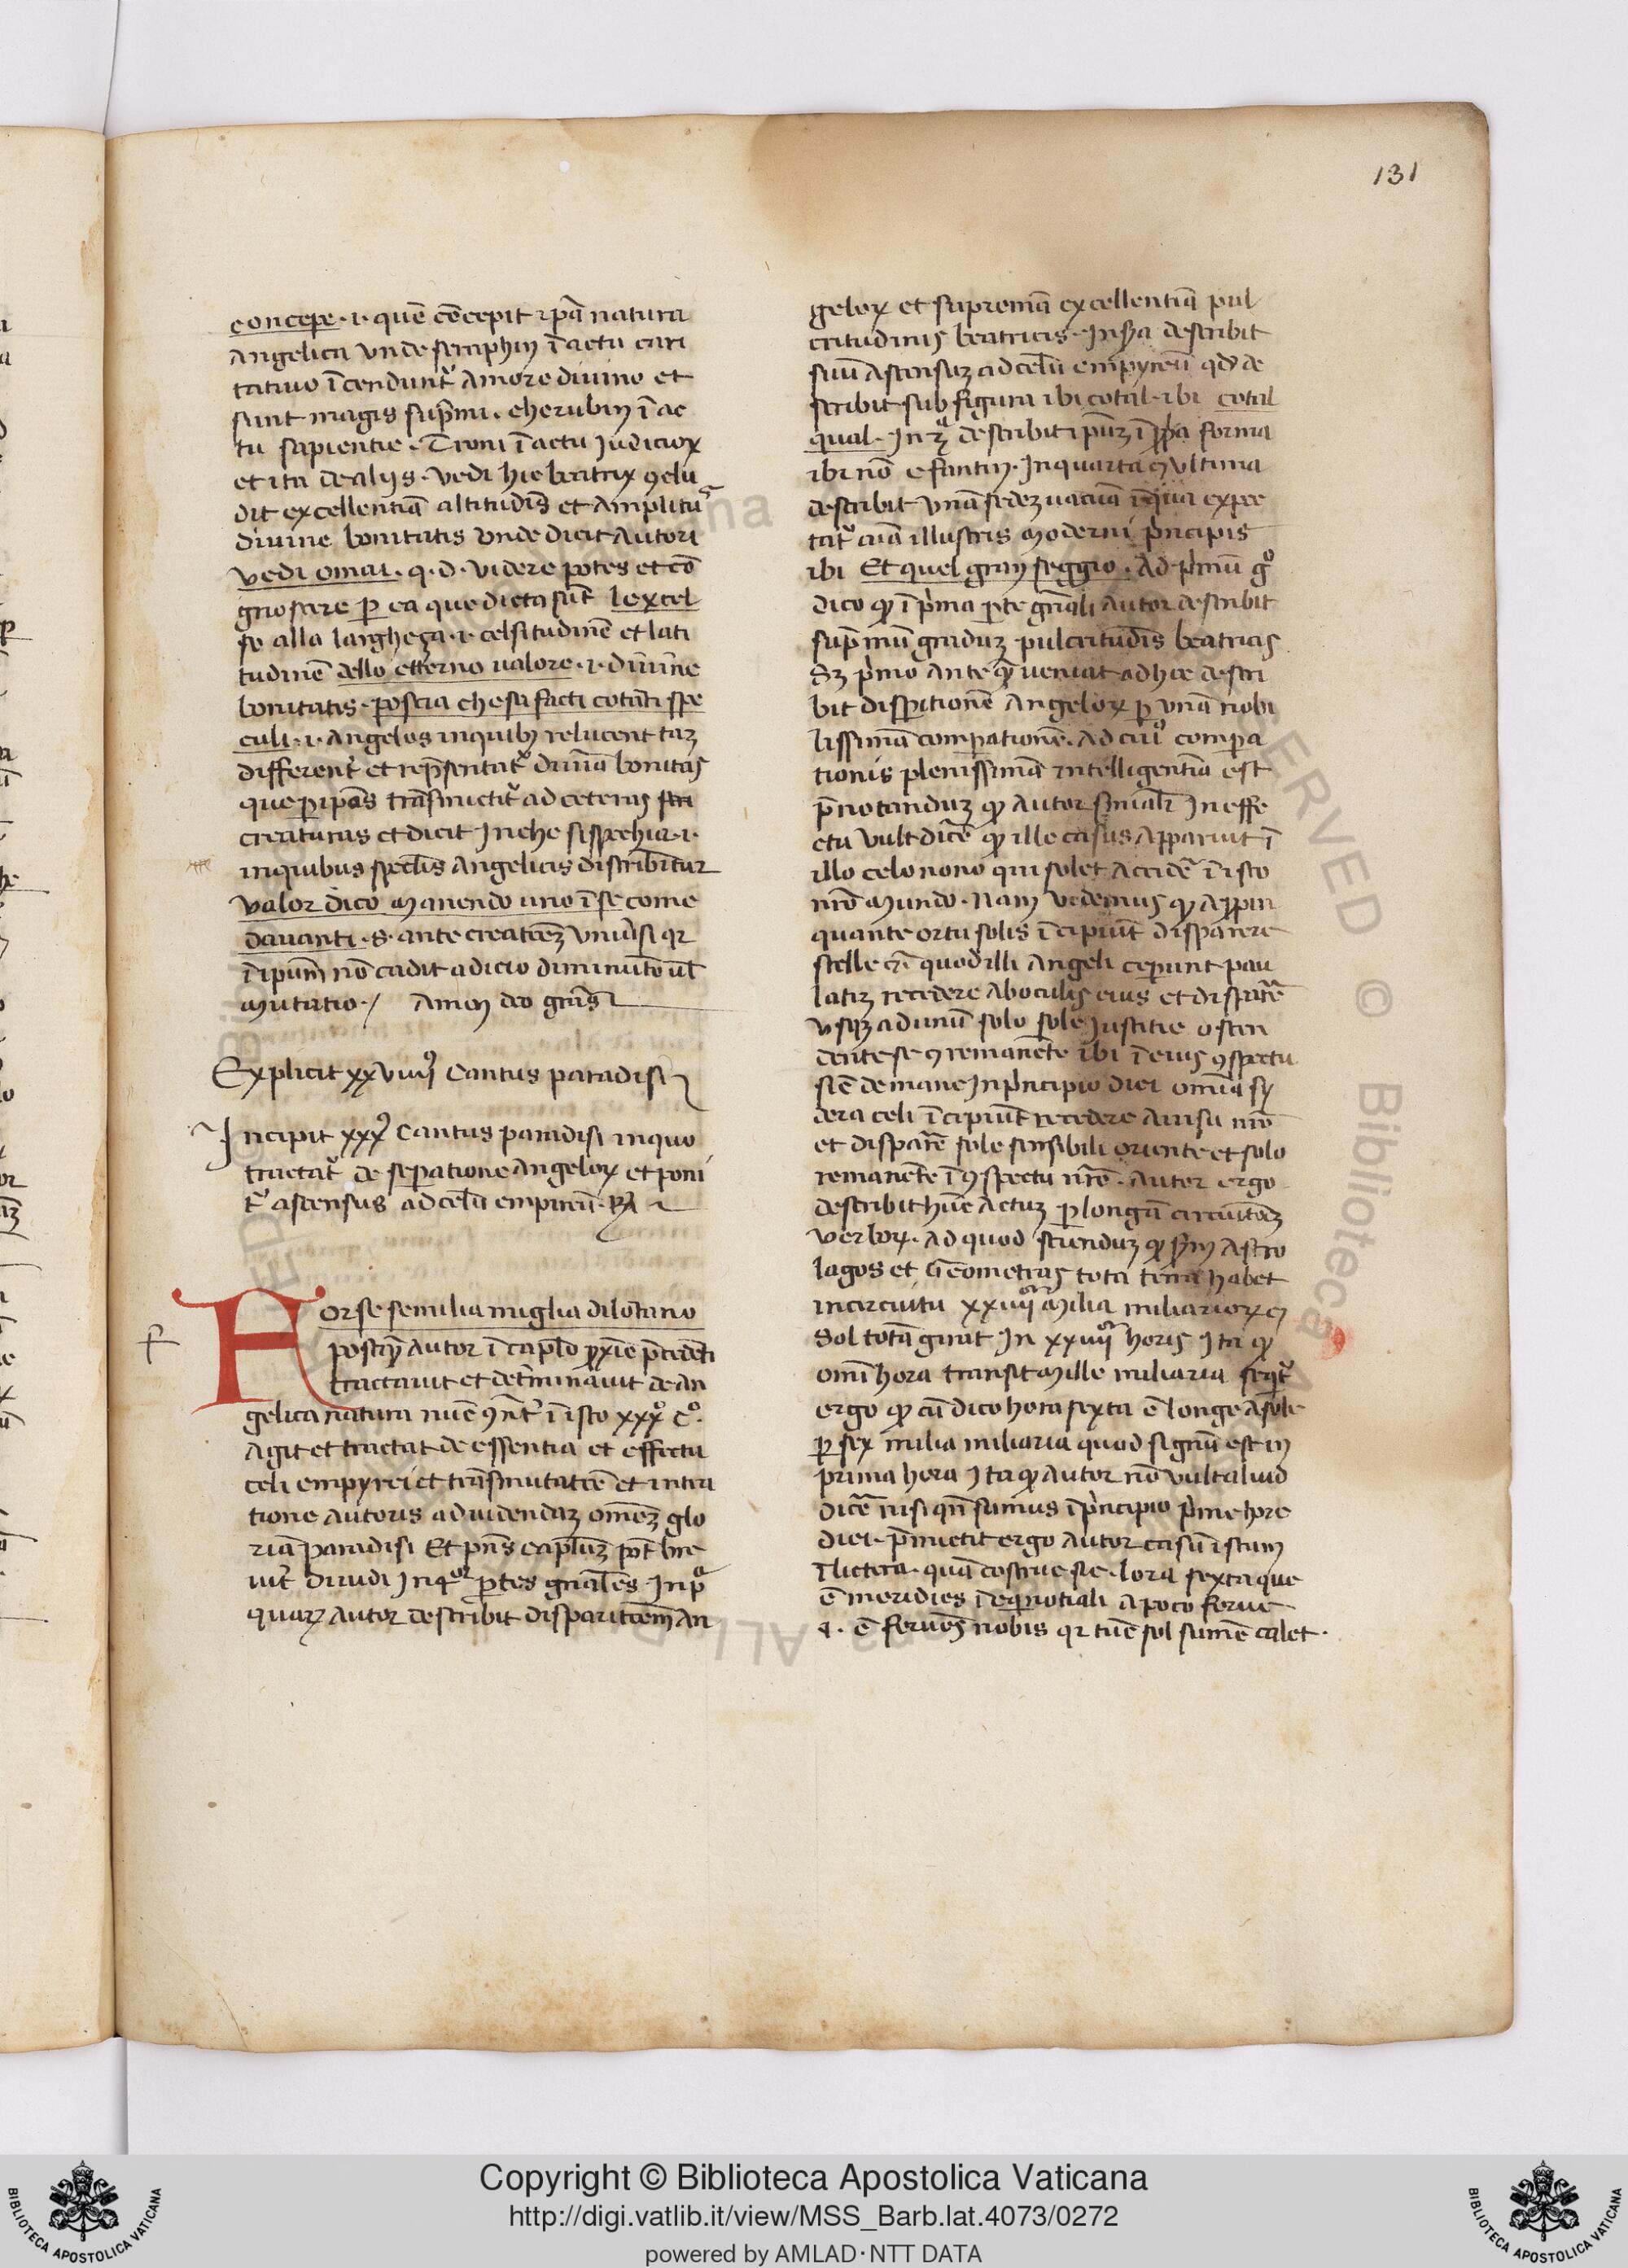 131
concepe .i. quē cōcepit ip̄a natura
angelica unde seraphin ī actu cari
tatiuo īcendunt᷑ amore diuino et
sunt magis sup̄mi . cherubin ī ac
tu sapientie . Troni ī actu iudicioꝝ
et ita de alijs . vedi hic beatrix ꝯclu
dit excellentiā altitudīs et amplitu
diuine bonitatis unde dicit autori
vedi omai . q . d . videre potes et co
gnoscere ꝑ ea que dicta sūt lexcel
se alla largheza .i. celsitudinē et lati
tudinē dello etterno ualore .i. diuīne
bonitatis . poscia che sa facti cotāti spe
culi .i. angelos in quibꝫ relucent taꝫ
different᷑ et rep̄sentat᷑ diuīa bonitas
que ꝑ ip̄as trāsmictit᷑ ad ceteras
creaturas et dicit In che si speçhia .i.
in quibus spec̄lis angelicis distribuitur
valor dico manendo uno ī se come
dauanti . s . ante creatōeꝫ vniu᷑si qr
ī ipum nō cadit adictio diminutō ul̄
mutatio / Amen deo grās
Explicit xxviiijꝰ Cantus paradisi
Incipit xxxꝰ Cantus paradisi in quo
tractat᷑ de sep̱atione angeloꝝ et poni
t᷑ ascensus ad celū empireū . Rᷓa
Forse semilia miglia dilōtano
postꝙ̄ autor ī cap̄lo ꝓxīe p̄cedēti
tractauit et det᷑minauit de an
gelica natura nūc ꝯn̄t᷑ ī isto xxxº cº.
agit et tractat de essentia et effectu
celi empyrei et trāsmutatōe et intra
tione autoris ad uidendaꝫ om̄eꝫ glo
riā paradisi Et pn̄s cap̄luꝫ pōt bre
uit᷑ diuidi In 4or p̱tes gn̄ales . In pª
quaꝝ autor describit disparitōem an
geloꝝ et supremā excellentiā pul
critudinis beatricis . In 2ᵃ describit
suū ascensuꝫ ad celū empyreū qd̄ de
scribit sub figura ibi cotal . ibi cotal
qual . In 3ª describit ipuꝫ ī ꝓp̄a forma
ibi nō e fantin . In quarta ꝯ ultima
describit unā sedeꝫ uacuā ī qua expec
tat᷑ aīa illustris moderni prīncipis
ibi Et quel gran seggio . Ad primū gº
dico ꝙ ī prima p̱te gn̄ali autor describit
sup̄mū graduꝫ pulcritudīs beatricis
Sꝫ primo ante qͣ ueniat ad hoc descri
bit disparitionē angeloꝝ ꝑ unā nobi
lissimā comparationē . Ad cuiº compa
tionis plenissimā intelligentiā est
p̄notanduꝫ ꝙ autor finalr̄ In effe
ctu uult dicē ꝙ ille casus apparuit ī
illo celo nono qui solet accidē ī isto
nrō mundo . Nam uidemus ꝙ appin
quante ortu solis īcipiūt disparere
stelle ⁊c̄ quod illi angeli ceperunt pau
latiꝫ recedere ab oculis eius et disparē
usqꝫ ad unū solo sole Iustitie osten
dente se ꝯ remanēte ibi ī eius ꝯspectu
sic̄ de mane In principio diei omnia sy
dera celi īcipiūt recedere a uisu nr̄o
et disparē sole sensibili oriente et solo
remanēte ī ꝯspectu nr̄o . Autor ergo
describit hūc actuꝫ ꝑ longū circuitoꝫ
verboꝝ . Ad quod sciendum ꝙ ẜm astro
lagos et Geometras tota terra habet
in circuitu xxiiijor milia miliarioꝝ ꝯ
Sol totā girat In xxiiijor horis Ita ꝙ
omī hora transit mille miliaria seqt᷑
ergo ꝙ cū dico hora sexta ē longe a sole
ꝑ sex milia miliaria quod signū est in
prima hora Ita ꝙ autor nō uult aliud
dicē nisi qn̄ sumus ī prīncipio prime hore
diei . p̄mictit ergo autor casū istum
ī lictera . quā costrue sic . lora sexta que
ē meridies ī eq̱notiali a poco ferue
.i. ē feruēs nobis qr tūc sol sum̄e calet .
Copyright © Biblioteca Apostolica Vaticana
http://digi.vatlib.it/view/MSS_Barb.lat.4073/0272
powered by AMLAD·NTT DATA
BIBLIOTECA APOSTOLICA VATICANA
BIBLIOTECA APOSTOLICA VATICANA